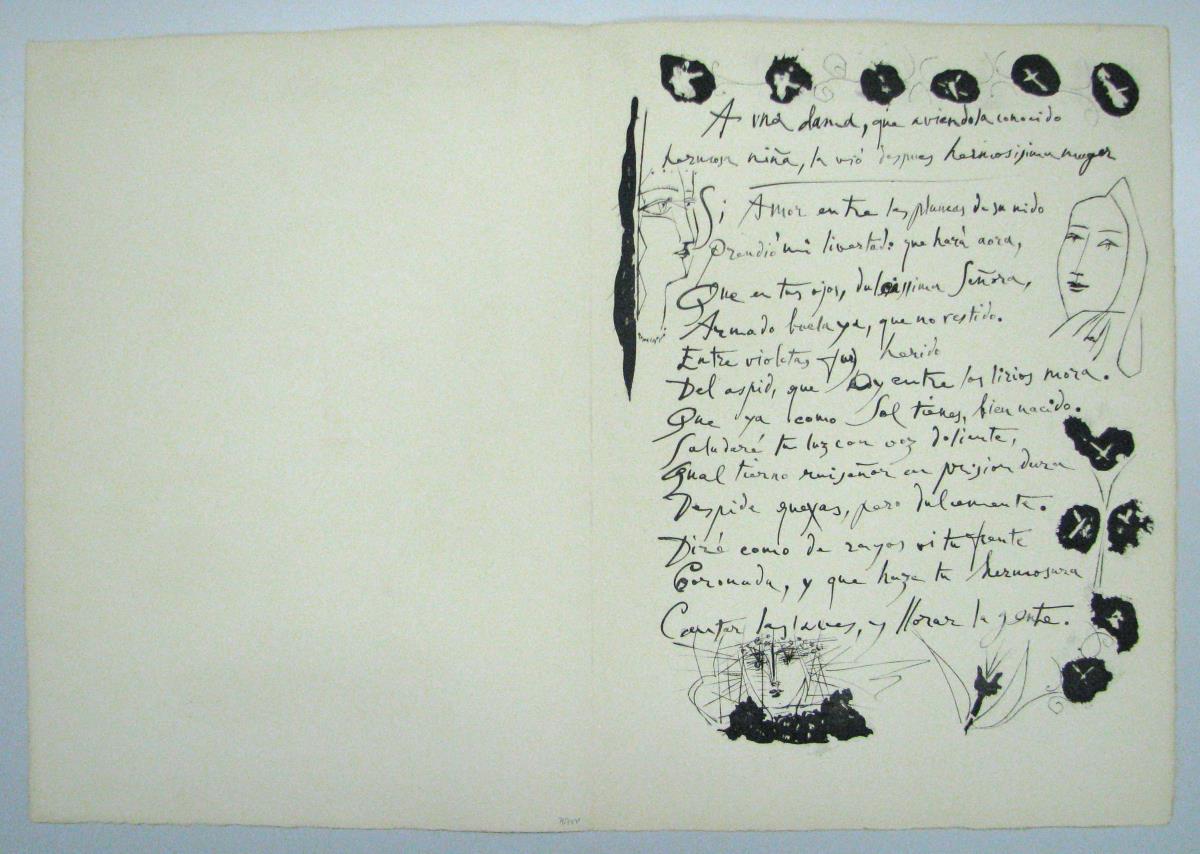 A una dama, que aviendola conocido
hermosa niña, la vió despues hermosisima muger
Si Amor entre las plumas de su nido
Prendió mi livertad: que hará aora,
Que en tus ojos, dulcissima Señora,
Armado buela ya, que no vestido.
Entre violetas fuy herido
Del aspid, que hoy entre los lirios mora.
Que ya como Sol tienes, bien nacido.
Saludaré tu luz con voz doliente,
Qual tierno ruiseñor en prision dura
Despide quexas, pero dulcemente.
Diré como de rayos vi tu frente
Coronada, y que haze tu hermosura
Cantar las aves, y llorar la gente.